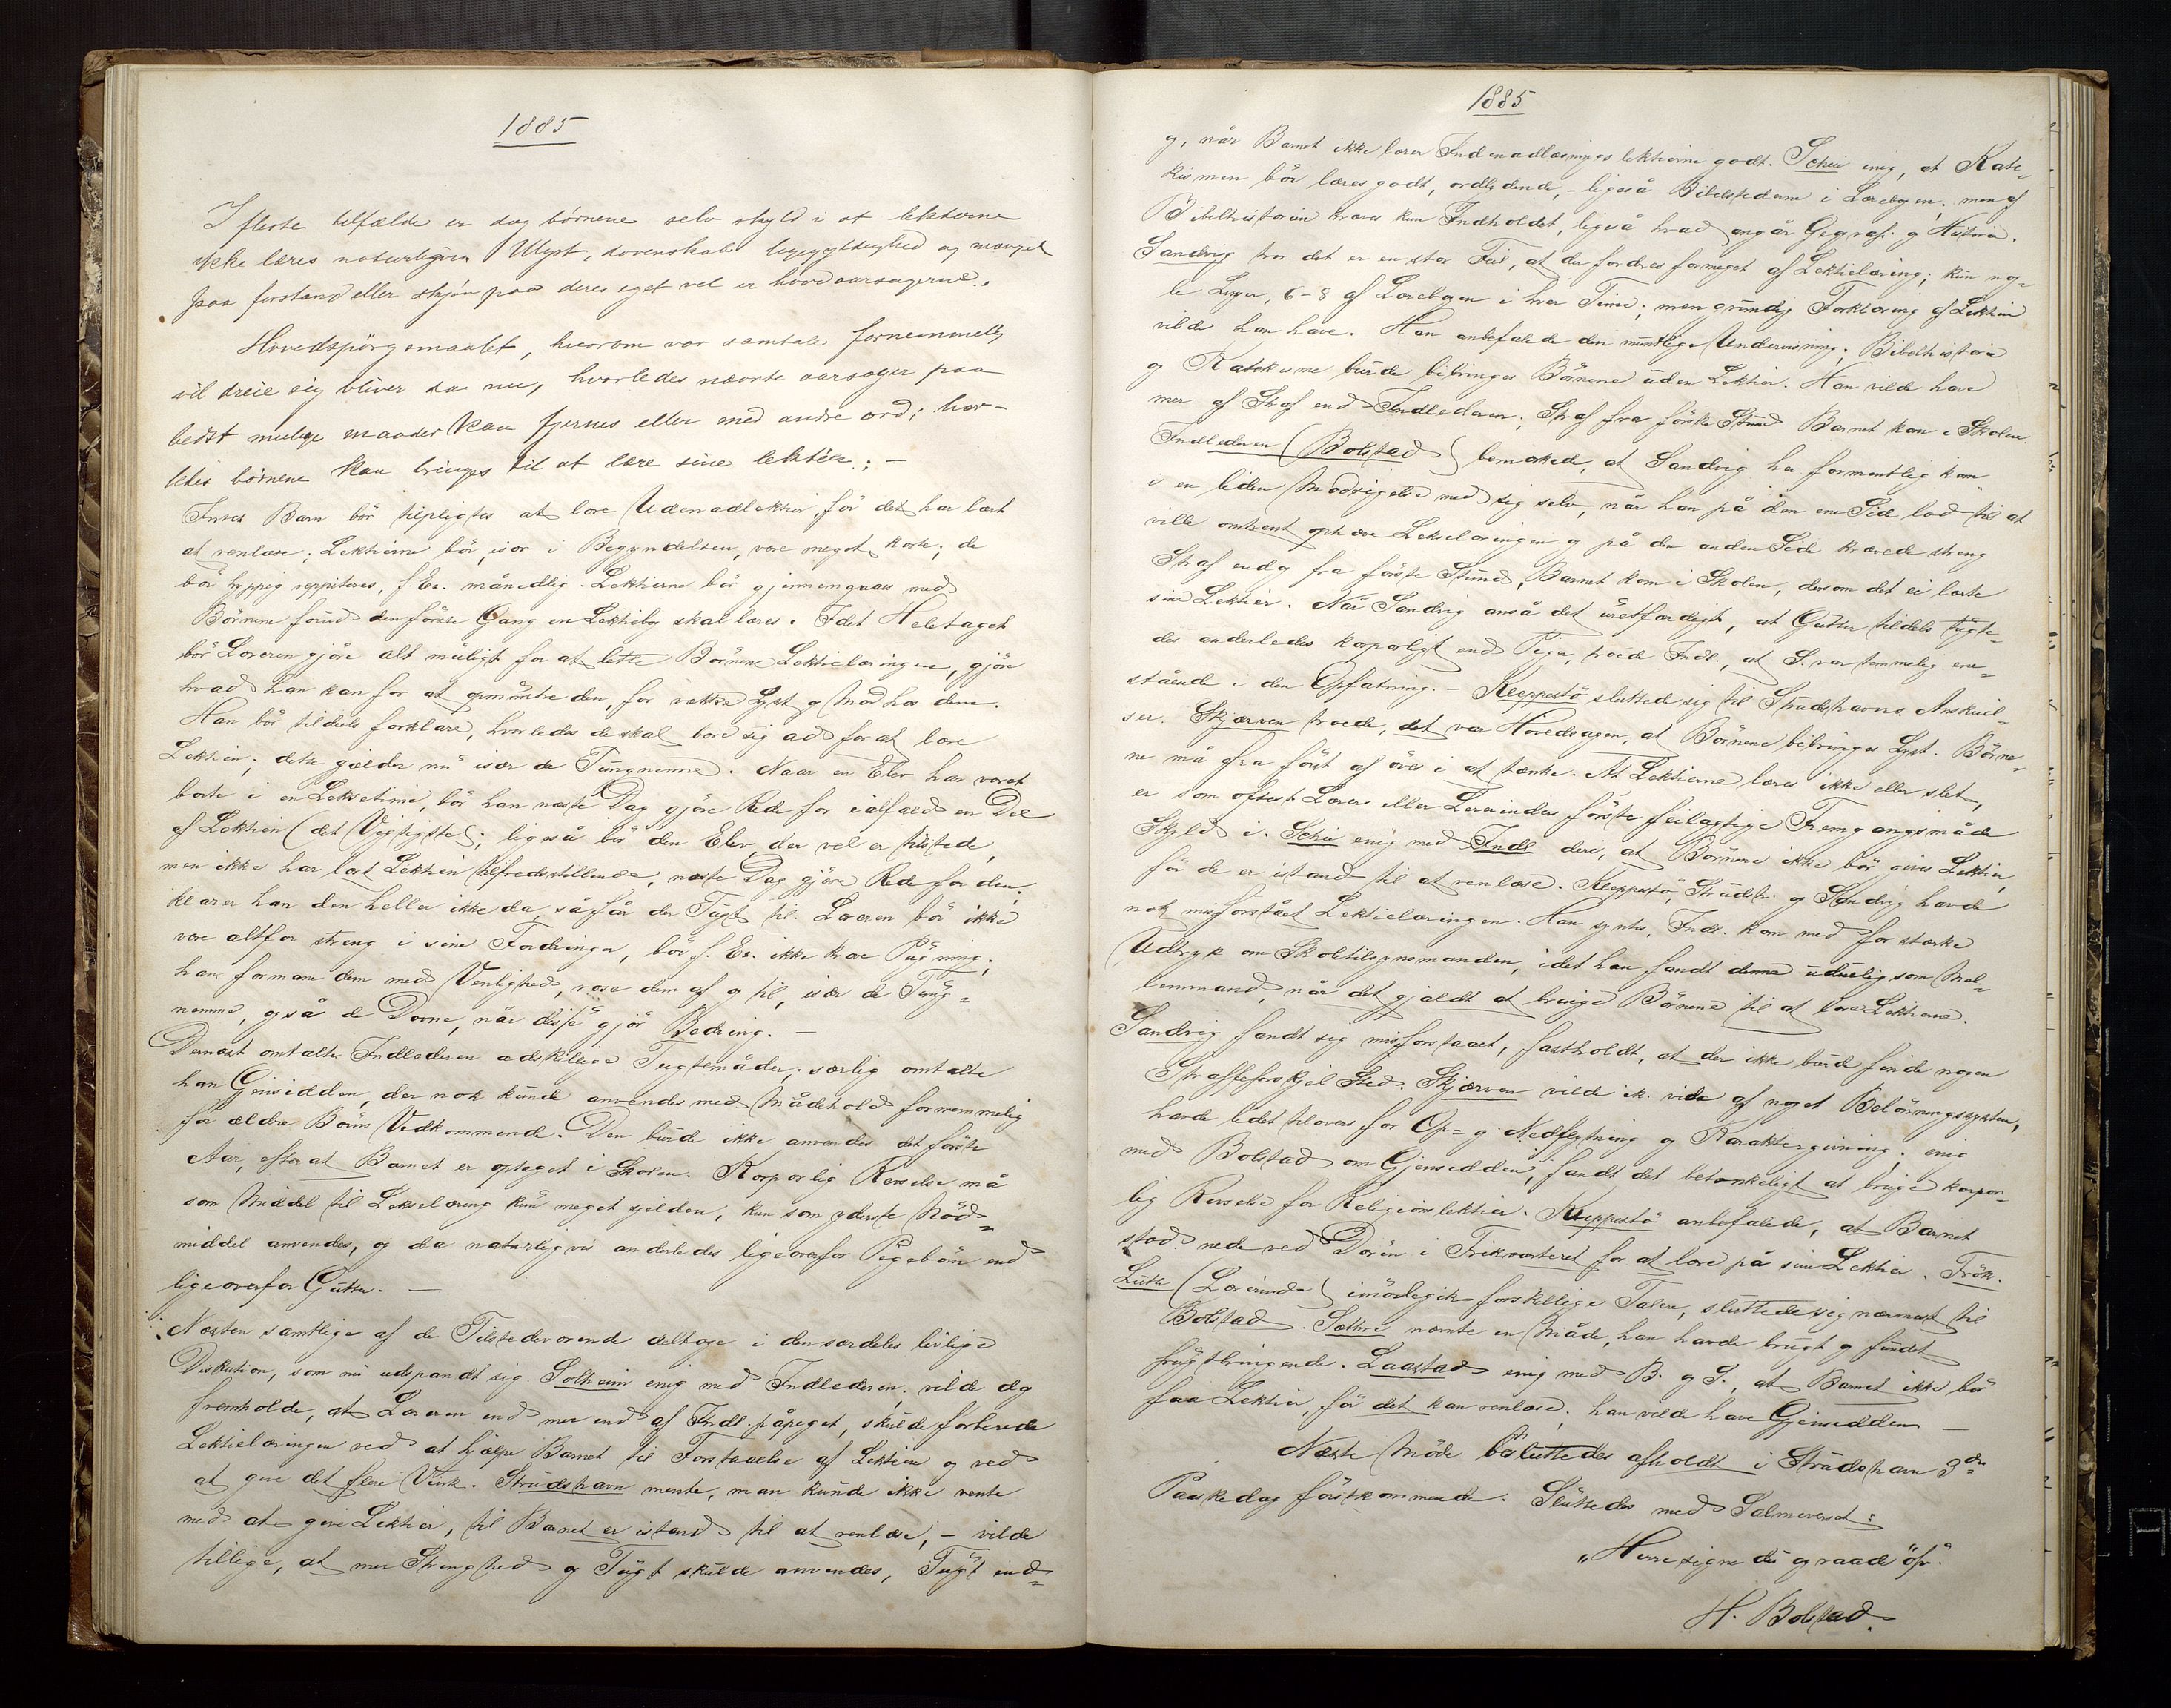 1885
I fleste tilfælde er dog börnene selv skyld i at lekterne
ikke læres naturligvis Ulyst, dovenskab ligegyldighed og mangel
paa forstand eller skjön paa deres eget vel er hovedaarsagerne.
Hovedspörgsmaalet, hvorom vor samtale fornemmelig
vil dreie sig bliver da nu, hvorledes nævnte aarsager paa
bedst mulige maader kan fjernes eller med andre ord: hvor-
ledes börnene kan bringes til at lære sine lektier; -
Intet Barn bör tilpligtes at lære Udenadlektier, för det har lært
at renlæse; Lektierne bör, især i Begyndelsen, være meget korte; de
bör hyppig reppiteres, f. Ex. månedlig. Lektierne bör gjennemgaaes med
Börnene forud den förste Gang en Lektiebog skal læres. I det Heletaget
bör Læreren gjöre alt muligt for at lette Börnene Lektielæringen, gjöre
hvad han kan for at opmuntre dem, for vække Lyst og Mod hos dem.
Han bör tildels forklare, hvorledes de skal bære sig ad for at lære
Lektien; dette gjælder nu især de Tungnemme. Naar en Elev har været
borte i en Leksetime, bör han næste Dag gjöre Rede for ialfald en Del
af Lektien (det Vigtigste); ligeså bör den Elev, der vel er tilstede,
men ikke har lært Lektien tilfredsstillende, næste Dag gjöre Rede for den;
klarer han den heller ikke da, så får der Tugt til. Læreren bör ikke
være altfor streng i sine Fordringer, bör f. Ex. ikke kræve Pugning;
han formane dem med Venlighed, rose dem af og til, især de Tung=
nemme, også de Dovne, når disse gjör Bedring. —
Dernæst omtalte Indlederen adskillige Tugtemåder; særlig omtalte
han Gjensidden, der nok kunde anvendes med Mådehold fornemmelig
for ældre Börns Vedkommende. Den burde ikke anvendes det förste
Aar, efterat Barnet er optaget i Skolen. Korporlig Revselse må
som Middel til Lekselæring kun meget sjelden, kun som yderste Nöd=
middel anvendes, og da naturligvis anderledes ligeoverfor Pigebörn end
ligeoverfor Gutter. —
Næsten samtlige af de Tilstedeværende deltoge i den særdeles livlige
Diskution, som nu udspandt sig. Solheim enig med Indlederen; vilde dog
fremholde, at Læreren end mer end af Indl. påpeget, skulde forberede
Lektielæringen ved at hjælpe Barnet til Forstaaelse af Lektien og ved
at give det flere Vink. Strudshavn mente, man kunde ikke vente
med at give Lektier, til Barnet er istand til at renlæse; - vilde
tillige, at mer Strenghed og Tugt skulde anvendes, Tugt end=
1885
og, når Barnet ikke lærer Indenadlæsningslektierne godt. Schei enig, at Kate=
kismen bör læres godt, ordlydende, - ligeså Bibelstederne i Lærebogen; men af
Bibelhistorien kræves kun Indholdet, ligeså hvad angår Gegrafi og Historie.
Sandvig tror det er en stor Feil, at der fordres formeget af Lektielæring; kun nog=
le Linjer, 6-8 af Lærebogen i hver Time; men grundig Forklaring af Lektien
vilde han have. Han anbefalede den mundtlige Undervisning; Bibelhistorie
og Katekisme burde bibringes Börnene uden Lektier. Han vilde have
mer af Straf end Indlederen; Straf fra förste Stund Barnet kom i Skolen.
Indlederen (Bolstad) bemærkede, at Sandvig her formentlig kom
i en liden Modsigelse med sig selv, når han på den ene Side lod til at
ville omtrent ophæve Lekselæringen og på den anden Side krævede streng
Straf endog fra förste Stund, Barnet kom i Skolen, dersom det ei lærte
sine Lektier. Når Sandvig anså det uretfærdigt, at Gutter tildels tugte=
des anderledes korporligt end Piger, troede Indl., at S. var temmelig ene=
stående i den Opfatning. - Kleppestö slutted sig til Strudshavns Anskuel=
ser. Skjærven troede, det var Hovedsagen, at Börnene bibringes Lyst. Börne=
ne må ogsaa först af öves i at tænke. At Lektierne læres ikke eller slet,
er som oftest Lærers eller Lærerinders förste feilagtige Fremgangsmåde
Skyld i. Schei enig med Indl. deri, at Börnene ikke bör gives Lektier,
för de er istand til at renlæse. Kleppestö, Strudsh. og Sandvig havde
nok misforstået Lektielæringen. Han syntes, Indl. kom med for stærke
Udtryk om Skoletilsynsmanden, idet han fandt denne uduelig som Mel=
lemmand, når det gjaldt at bringe Börnene til at lære Lektierne.
Sandvig fandt sig misforstaaet, fastholdt, at der ikke burde finde nogen
Strafforskjel Sted. Skjærven vilde ik. vide af noget Belönningssystem,
havde lidet tilovers for Op= og Nedflytning og Karaktergivning; enig
med Bolstad om Gjensidden; fandt det betænkeligt at bruge korpor=
lig Revselse for Religionslektier. Kleppestö anbefalede, at Barnet
stod nede ved Dören i Frikvarteret for at lære på sine Lektier. Frök.
Lütke (Lærerinde) imödegik forskellige Talere, sluttede sig nærmest til
Bolstad. Sæthre nævnte en Måde, han havde brugt og fundet
frugtbringende. Laastad enig med B. og S., at Barnet ikke bör
faa Lektier, för det kan renlæse; han vilde have Gjensidden —
Næste Möde besluttedes afholdt i Strudshavn 3die
Paaskedag förstkommende. Sluttedes med Salmeverset:
"Herre signe du og raade" ofr.
H. Bolstad.